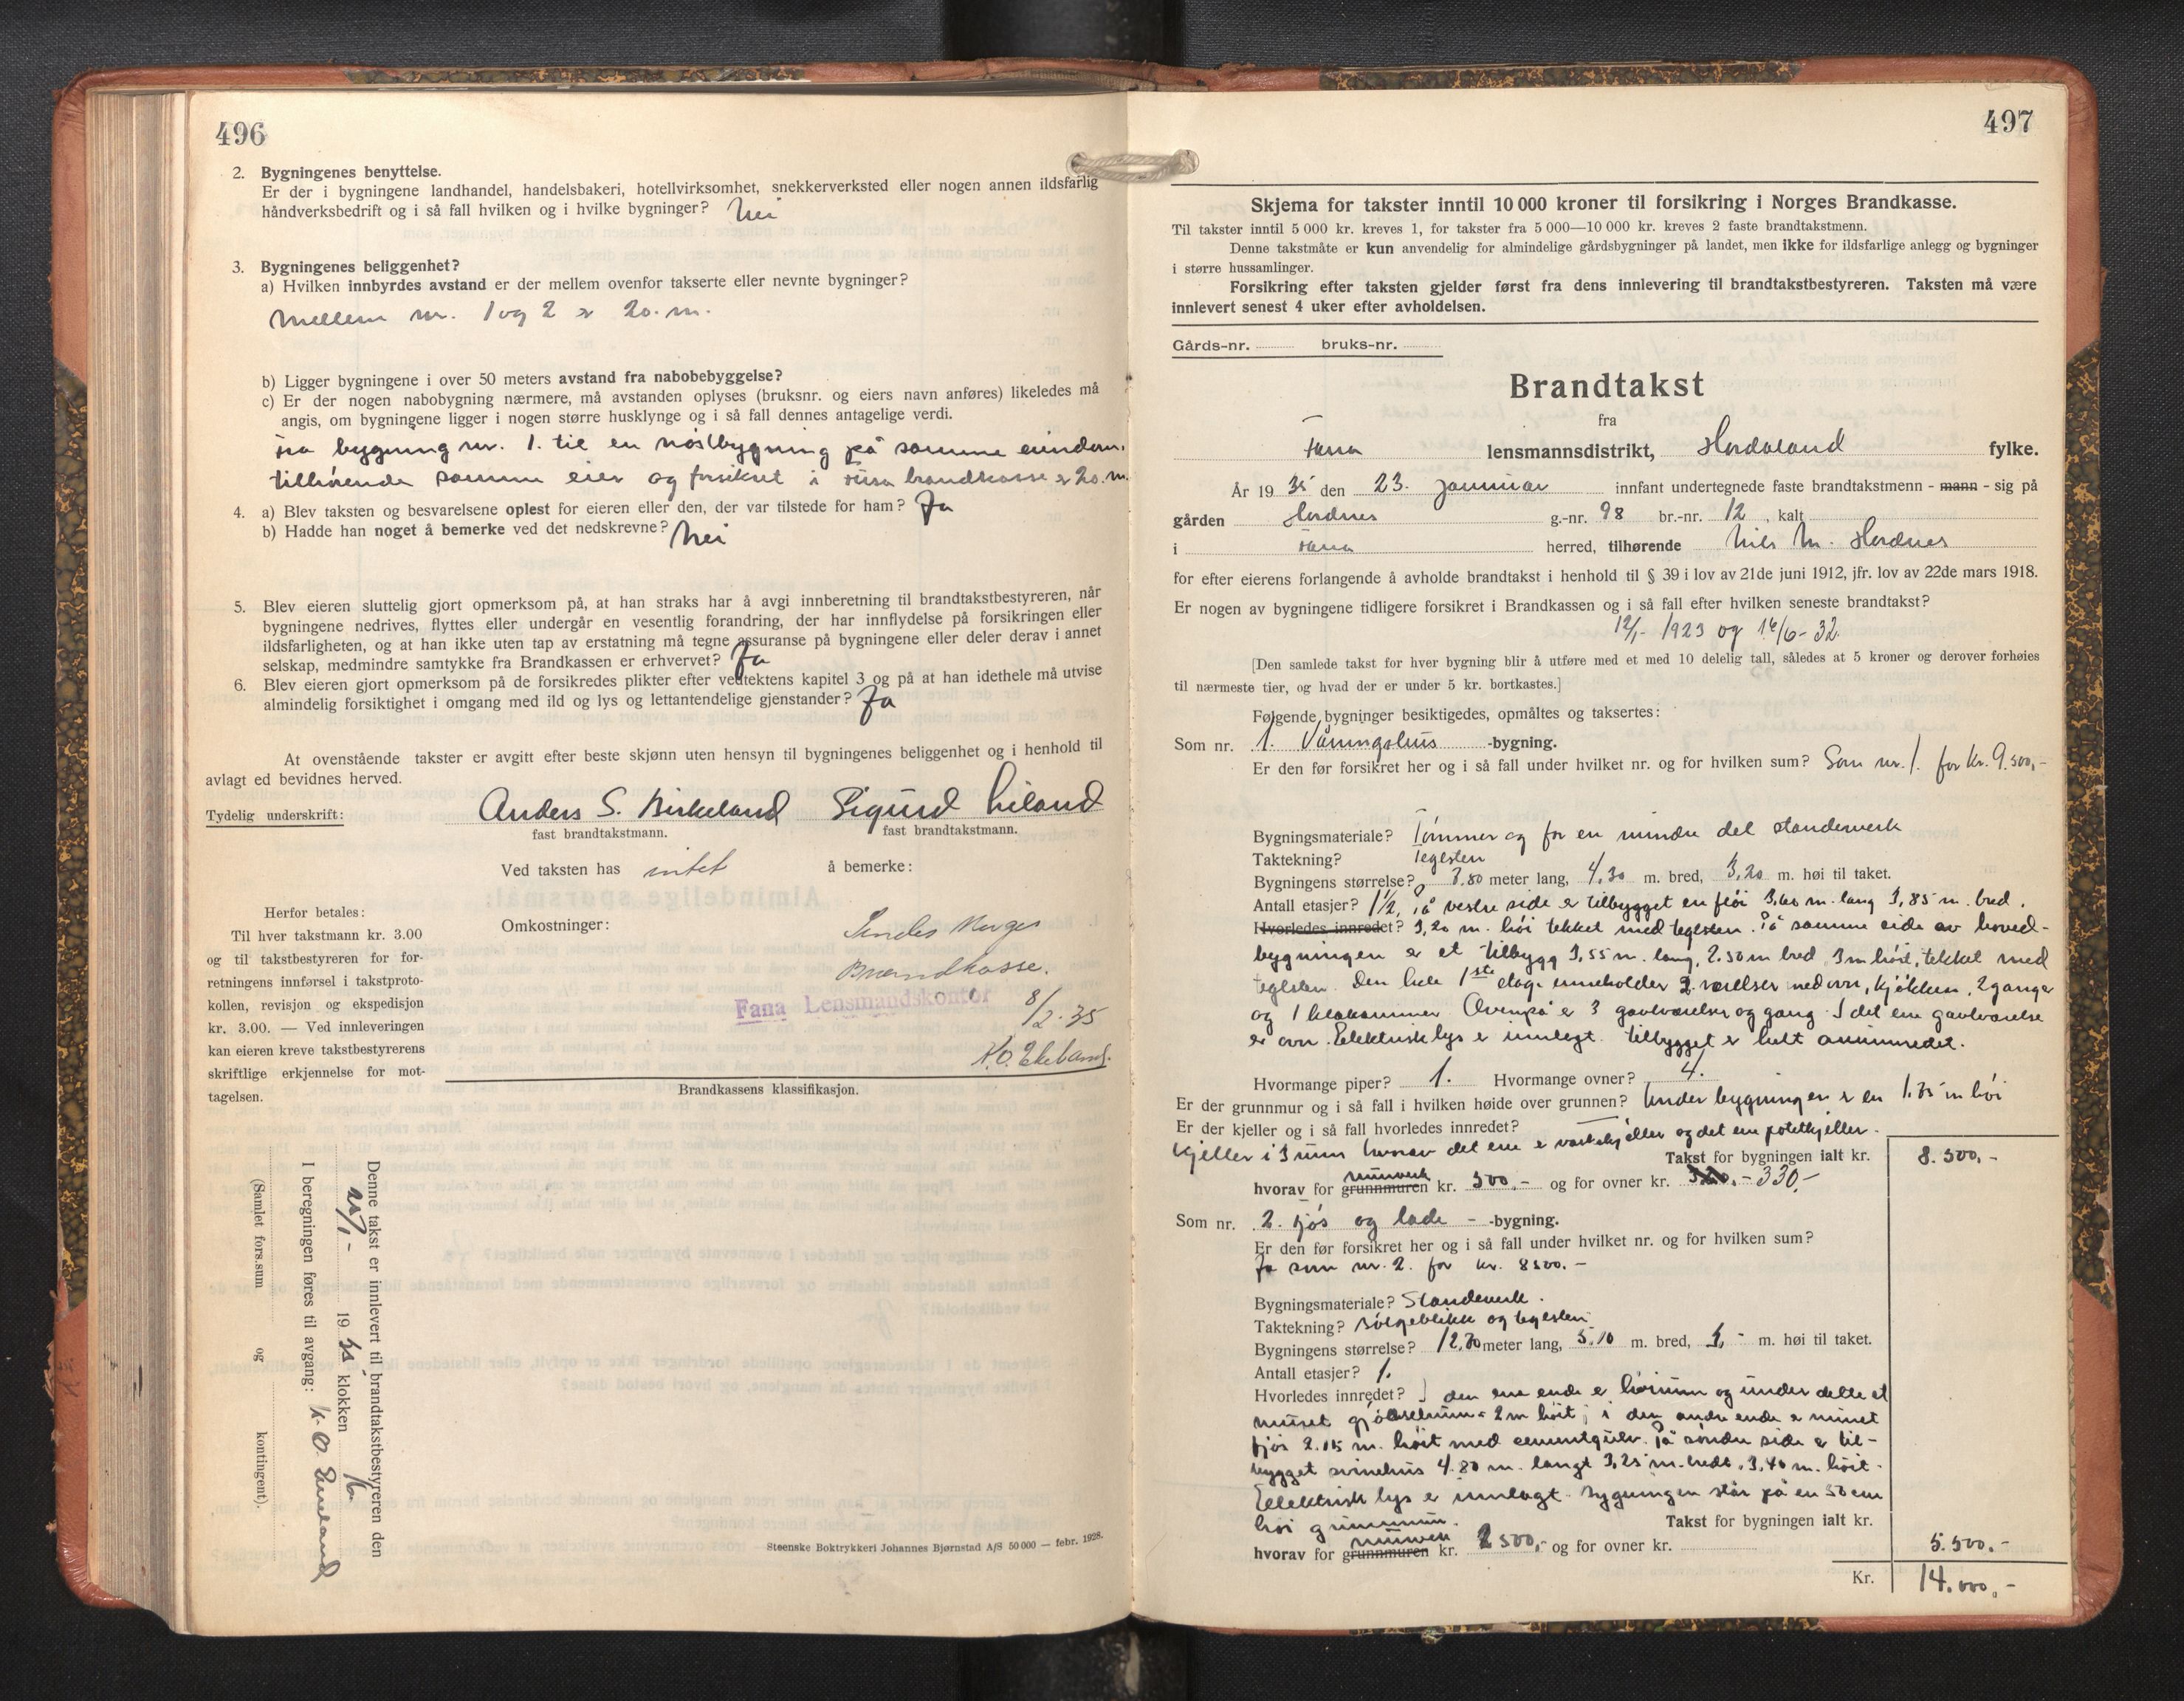 496
2. Bygningenes benyttelse.
Er der i bygningene landhandel, handelsbakeri, hotellvirksomhet, snekkerverksted eller nogen annen ildsfarlig
håndverksbedrift og i så fall hvilken og i hvilke bygninger? Nei
3. Bygningenes beliggenhet?
a) Hvilken innbyrdes avstand er der mellem ovenfor takserte eller nevnte bygninger?
Mellem nr. 1 og 2 er 20. m.
b) Ligger bygningene i over 50 meters avstand fra nabobebyggelse?
c) Er der nogen nabobygning nærmere, må avstanden oplyses (bruksnr. og eiers navn anføres) likeledes må
angis, om bygningene ligger i nogen større husklynge og i så fall dennes antagelige verdi.
fra bygning nr. 1. til en nøstbygning på samme eiendom,
tilhørende samme eier og forsikret i brandkasse er 20. m.
4. a) Blev taksten og besvarelsene oplest for eieren eller den, der var tilstede for ham? Ja
b) Hadde han noget å bemerke ved det nedskrevne? Nei
5. Blev eieren sluttelig gjort opmerksom på, at han straks har å avgi innberetning til brandtakstbestyreren, når
bygningene nedrives, flyttes eller undergår en vesentlig forandring, der har innflydelse på forsikringen eller
ildsfarligheten, og at han ikke uten tap av erstatning må tegne assuranse på bygningene eller deler derav i annet
selskap, medmindre samtykke fra Brandkassen er erhvervet? Ja
6. Blev eieren gjort opmerksom på de forsikredes plikter efter vedtektens kapitel 3 og på at han idethele må utvise
almindelig forsiktighet i omgang med ild og lys og lettantendelige gjenstander? Ja
At ovenstående takster er avgitt efter beste skjønn uten hensyn til bygningenes beliggenhet og i henhold til
avlagt ed bevidnes herved.
Tydelig underskrift: Anders S. Birkeland Sigurd Liland
fast brandtakstmann. fast brandtakstmann.
Ved taksten has intet å bemerke:
Herfor betales:
Til hver takstmann kr. 3.00
og til takstbestyreren for for-
retningens innførsel i takstproto-
kollen, revisjon og ekspedisjon
kr. 3.00. — Ved innleveringen
kan eieren kreve takstbestyrerens
skriftlige erkjennelse for mot-
tagelsen.
Omkostninger:
Sendes Norges
Brandkasse.
Fana Lensmandskontor 8/2-35
K.O. Ekeland.
Brandkassens klassifikasjon.
Denne takst er innlevert til brandtakstbestyreren den
1935 klokken
I beregningen føres til avgang: K. O. Ekeland
(Samlet fors.sum og kontingent).
Steenske Boktrykkeri Johannes Bjørnstad A/S 50 000 — febr. 1928.
497
Skjema for takster inntil 10 000 kroner til forsikring i Norges Brandkasse.
Til takster inntil 5 000 kr. kreves 1, for takster fra 5 000—10 000 kr. kreves 2 faste brandtakstmenn.
Denne takstmåte er kun anvendelig for almindelige gårdsbygninger på landet, men ikke for ildsfarlige anlegg og bygninger
i større hussamlinger.
Forsikring efter taksten gjelder først fra dens innlevering til brandtakstbestyreren. Taksten må være
innlevert senest 4 uker efter avholdelsen.
Gårds-nr. bruks-nr.
Brandtakst
fra
Fana lensmannsdistrikt, Hordaland fylke.
År 1935 den 23. januar innfant undertegnede faste brandtakstmenn - mann - sig på
gården Hordnes g.-nr. 98 br.-nr. 12, kalt
i Fana herred, tilhørende Nils M. Hordnes
for efter eierens forlangende å avholde brandtakst i henhold til § 39 i lov av 21de juni 1912, jfr. lov av 22de mars 1918.
Er nogen av bygningene tidligere forsikret i Brandkassen og i så fall efter hvilken seneste brandtakst?
12/1- 1923 og 16/6-32.
[Den samlede takst for hver bygning blir å utføre med et med 10 delelig tall, således at 5 kroner og derover forhøies
til nærmeste tier, og hvad der er under 5 kr. bortkastes.]
Følgende bygninger besiktigedes, opmåltes og taksertes:
Som nr. 1. Våningshus -bygning.
Er den før forsikret her og i så fall under hvilket nr. og for hvilken sum? Som nr. 1. for kr. 9.500,-
Bygningsmateriale? Tømmer og for en mindre del standerverk
Taktekning? Teglsten
Bygningens størrelse? meter lang, 4,30 m. bred, 3,20 m. høi til taket.
Antall etasjer? 1½, På vestre side er tilbygget en fløi 3,60 m. lang 3,85 m. bred.
Hvorledes innredet? 3,20 m. høi tekket med teglsten. På samme side av hoved-
bygningen er et tilbygg 3,55 m. lang, 2.50 m bred, 3 m høit, tekket med
teglsten. Den hele 1ste etage inneholder 2 værelser med ovn, kjøkken, 2 ganger
og 1 kleskammer. Ovenpå er 3 gavlværelser og gang. I det ene gavlværelse
er ovn. Elektrisk lys er innlagt. Tilbygget er helt uinnredet.
Hvormange piper? 1. Hvormange ovner? 4.
Er der grunnmur og i så fall i hvilken høide over grunnen? Under bygningen er en 1.75 m høi
Er der kjeller og i så fall hvorledes innredet?
kjeller i 3 rum hvorav det ene er vaskekjeller og det ene potetkjeller.
Takst for bygningen ialt kr. 8.500,-
hvorav for grunnmuren murverk kr. 500.- og for ovner kr. 330,-
Som nr. 2. fjøs og lade - -bygning.
Er den før forsikret her og i så fall under hvilket nr. og for hvilken sum?
Ja som nr. 2. for kr. 8500.-
Bygningsmateriale? Standerverk.
Taktekning? Bølgeblikk og teglsten
Bygningens størrelse? 12.70 meter lang, 5.10 m. bred, 5,- m. høi til taket.
Antall etasjer? 1.
Hvorledes innredet? I den ene ende er høirum og under dette et
muret gjødselrum 2 m høit; i den andre ende er muret
fjøs 2.15 m. høit med cementgulv. På søndre side er til-
bygget svinehus 4.80 m. langt 3,25 m. bredt, 3,40 m. høit.
Elektrisk lys er innlagt. Bygningen står på en 50 cm
høi grunnmur.
Takst for bygningen ialt kr. 5.500.-
hvorav for grunnmuren murverk kr. 2500,- og for ovner kr.
Kr. 14.000,-